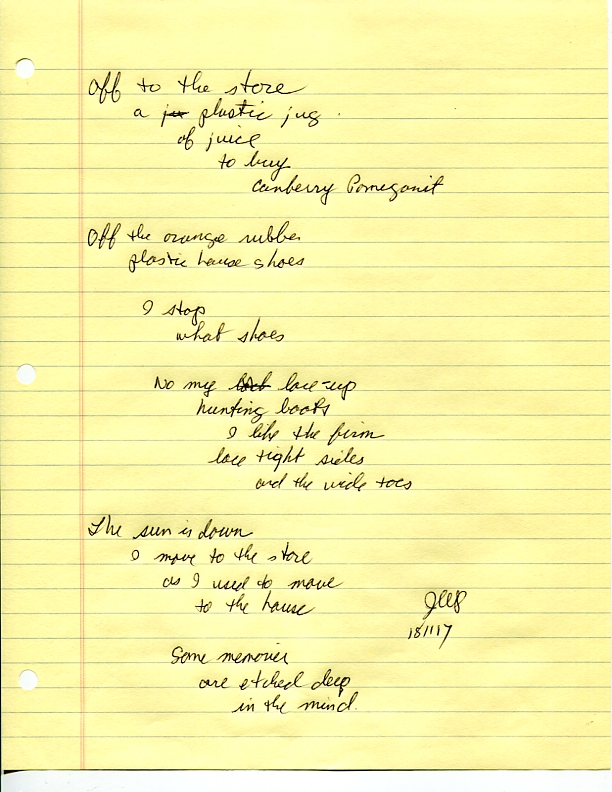 Off to the store
a plastic jug
of juice
to buy
Canberry Pomeganit
Off the orange rubber
plastic house shoes
I stop
what shoes
No my lace-up
hunting boots
I like the firm
lace tight sides
and the wide toes
The sun is down
I move to the store
as I used to move
to the house
18/1/17
Some memories
are etched deep
in the mind.